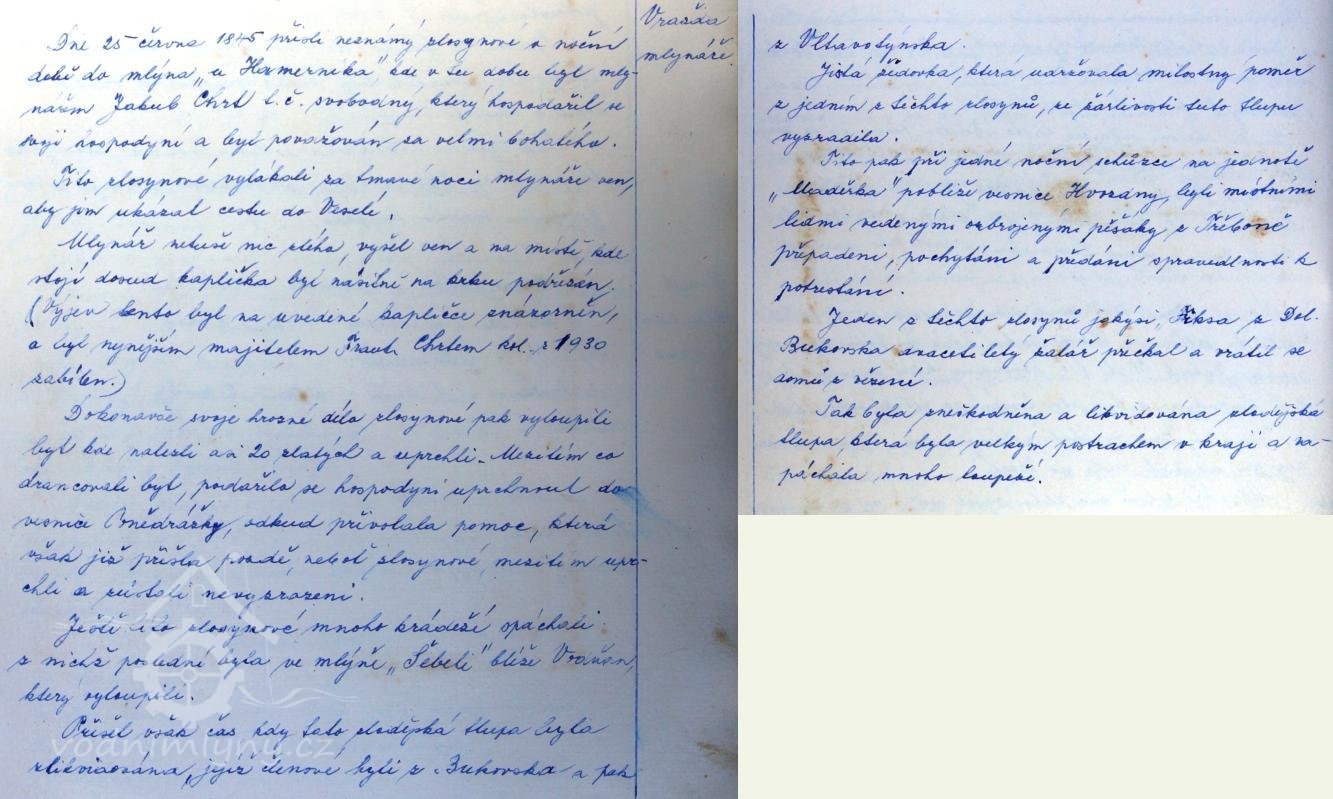 Vražda
mlynáře.
Dne 25 června 1845 přišli neznámý zlosynové v noční
době do mlýna „u Hamerníka“, kde v tu dobu byl mly-
nářem Jakub Chrt t.č. svobodný, který hospodařil se
svojí hospodyní a byl považován za velmi bohatého.
Tito zlosynové vylákali za tmavé noci mlynáře ven,
aby jim ukázal cestu do Veselí.
Mlynář netuše nic zlého, vyšel ven a na místě, kde
stojí dosud kaplička byl násilně na krku podřezán.
(Výjev tento byl na uvedené kapličce znázorněn,
a byl nynějším majitelem Frant. Chrtem kol. r 1930
zabílen.)
Dokonavše svoje hrozné dílo zlosynové pak vyloupili
byt kde nalezli asi 20 zlatých a uprchli. Mezitím co
drancovali byt, podařilo se hospodyni uprchnout do
vesnice Ponědrážky, odkud přivolala pomoc, která
však již přišla pozdě, neboť zlosynové, mezitím upr-
chli a zůstali nevyzrazeni.
Ještě tito zlosynové mnoho krádeží spáchali
z nichž poslední byla ve mlýně „Šebeli“ blíže
který vyloupili.
Přišel však čas kdy tato zlodějská tlupa byla
zlikvidována, jejíž členové byli z Bukovska a pak
z Vltavotýnska.
Jistá židovka, která udržovala milostný poměr
z jedním z těchto zlosynů, ze žárlivosti tuto tlupu
vyzradila.
Tito pak při jedné noční schůzce na jednotě
„Maděrka“ poblíže vesnice Hvozdny, byli místními
lidmi vedenými ozbrojenými pěšáky z Třeboně
připadeni, pochytáni a předáni spravedlnosti k
potrestání.
Jeden z těchto zlosynů jakýsi Fiksa z Dol.
Bukovska dvacetiletý žalář přečkal a vrátil se
domů z vězení.
Tak byla zneškodněna a likvidována zlodějská
tlupa, která byla velkým postrachem v kraji a na-
páchala mnoho loupeží.
vodnimlyny.cz